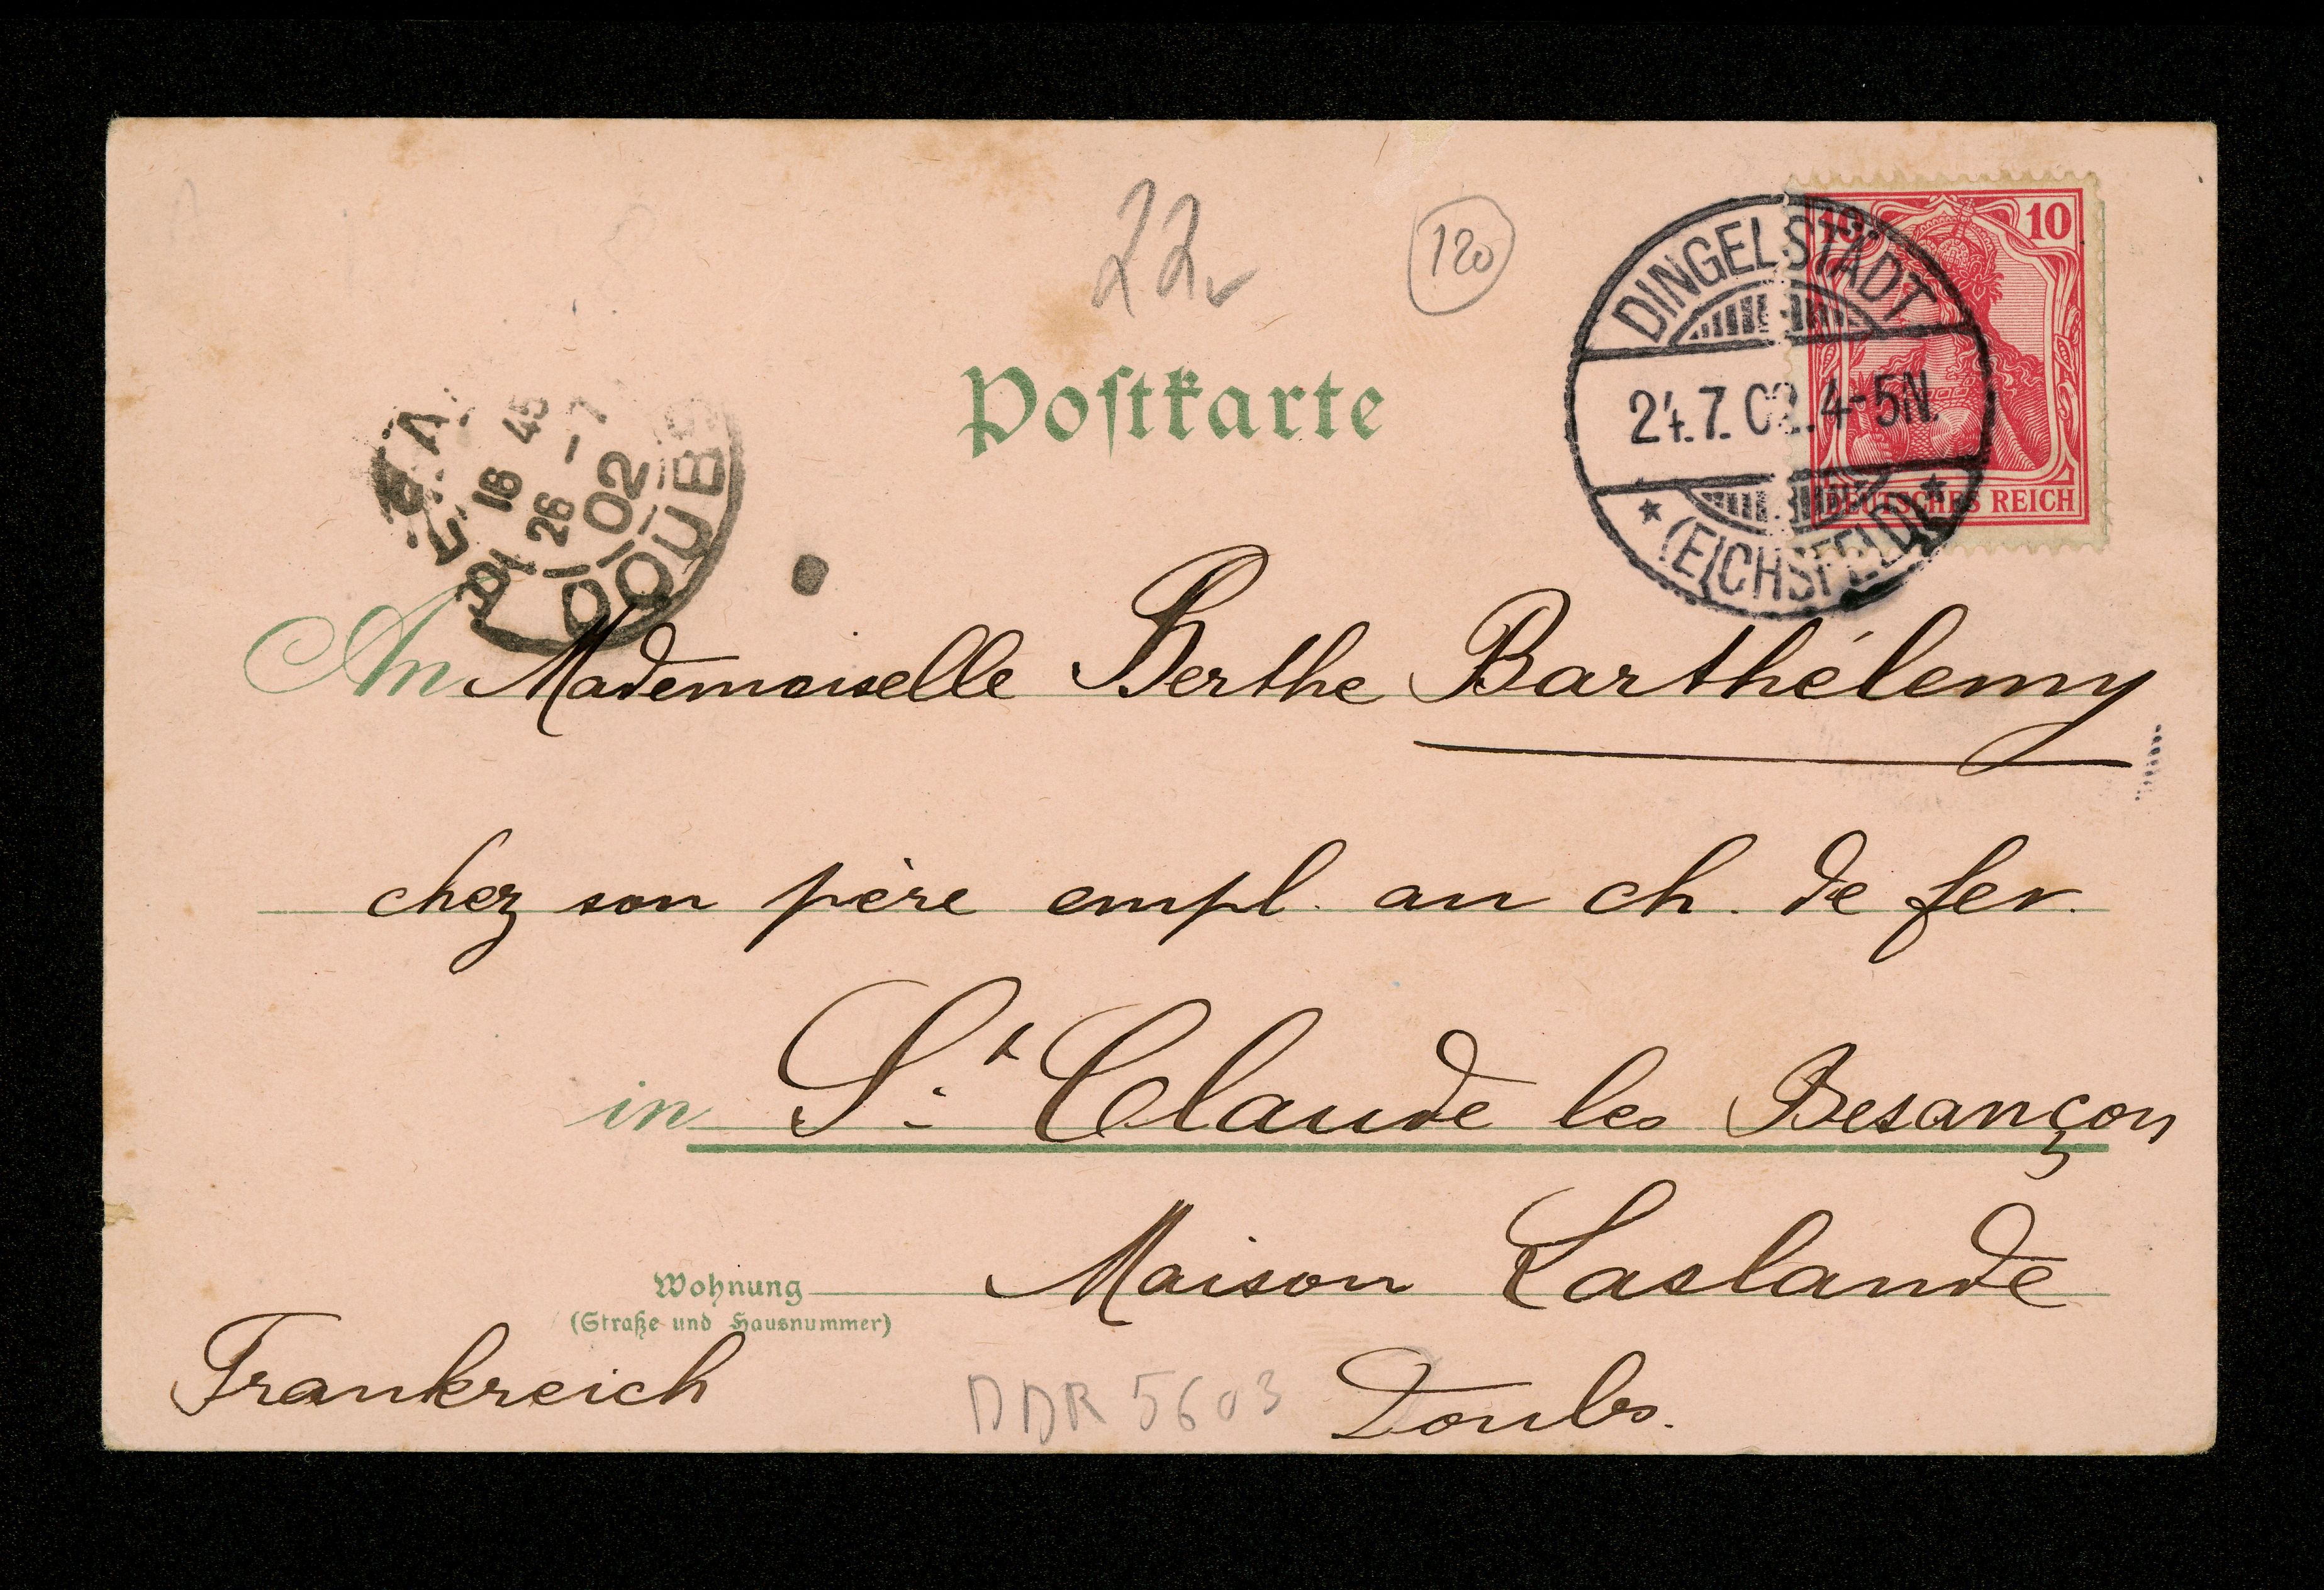 22
120
10 10
DINGELSTÄDT
24.7.02.4-5N.
DEUTSCHES REICH
* (EICHSFELD) *
Postkarte
16 45
26 -7
02
DOUBS
An Mademoiselle Berthe Barthélemy
chez son père empl. au ch. de fer.
in St Claude les Besançon
Wohnung Maison Laslande
(Straße und Hausnummer)
Frankreich
DDR 5603 Doubs.